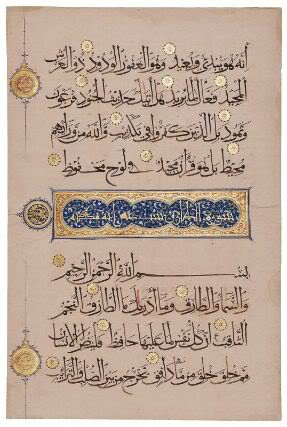 إنه هو يبدئ ويعيد وهو الغفور الودود ذو العرش
المجيد فعال لما يريد هل أتيك حديث الجنود فرعون
وثمود بل الذين كفروا في تكذيب والله من ورائهم
محيط بل هو قرآن مجيد في لوح محفوظ
بسم الله الرحمن الرحيم
والسماء والطارق وما أدريك ما الطارق النجم
الثاقب إن كل نفس لما عليها حافظ فلينظر الإنسان
مم خلق خلق من ماء دافق يخرج من بين الصلب والترائب